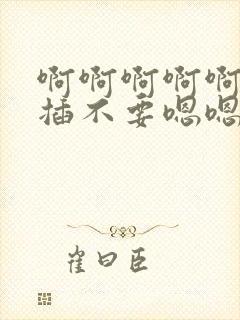 啊啊啊啊啊
插不要嗯嗯
崔曰臣